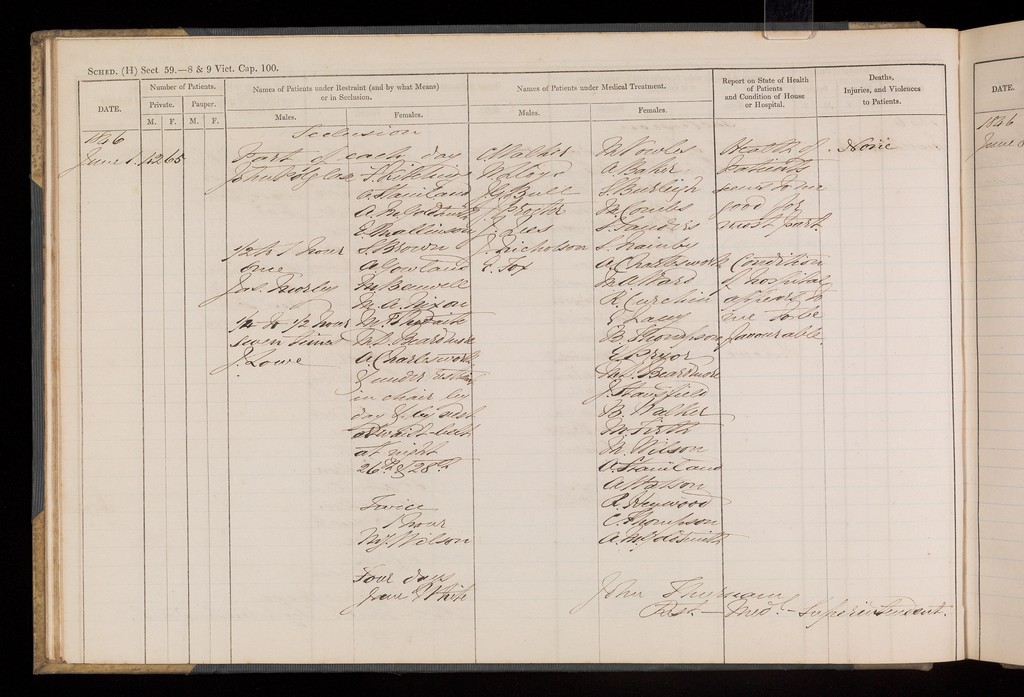 SCHED. (H) Sect 59.—8 & 9 Vict. Cap. 100.
DATE.
Number of Patients.
Private.
Pauper.
M.
F.
M.
F.
Names of Patients under Restraint (and by what Means)
or in Seclusion.
Males.
Females.
Names of Patients under Medical Treatment.
Males.
Females.
Report on State of Health
of Patients
and Condition of House
or Hospital.
Deaths,
Injuries, and Violences
to Patients.
1846
June 1.
42
65
Seclusion
Part of each day
John
1/2 & 1 hour
once
Jas.
1/4 to 1/2 hour
seven times
J. Lowe
O. Staniland
A. McGoldsmith
E. Mallinson
S. Brown
A. Gowland
M.
M. A. Nixon
M.
M. L. Beardmore
A. Charlesworth
& under restraint
in chair by
day & by wrist
at
at night
26th & 28th
Twice
1 hour
My. Wilson
Four days
Jane White
C. Walker
J. G. Bull
J. Procter
J. Lees
J. Nicholson
E. Fox
M. Fowler
A. Baker
S. Burleigh
M. Combs
S. Sanders
S. Hainby
A. Charlesworth
M. A. Ward
R.
E. Lacey
B. Thompson
E. Pryor
M. L. Beardmore
J. Stansfield
B. Walker
M. Firth
M. Wilson
O. Staniland
A. Watson
R. Heywood
C. Thompson
A. McGoldsmith
Health of
Patients
seems to me
good for
most part.
Condition
of hospital
appears to
me to be
favourable.
None
John Thurnam
Rest. Medl. Superintendent.
DATE.
1846
June